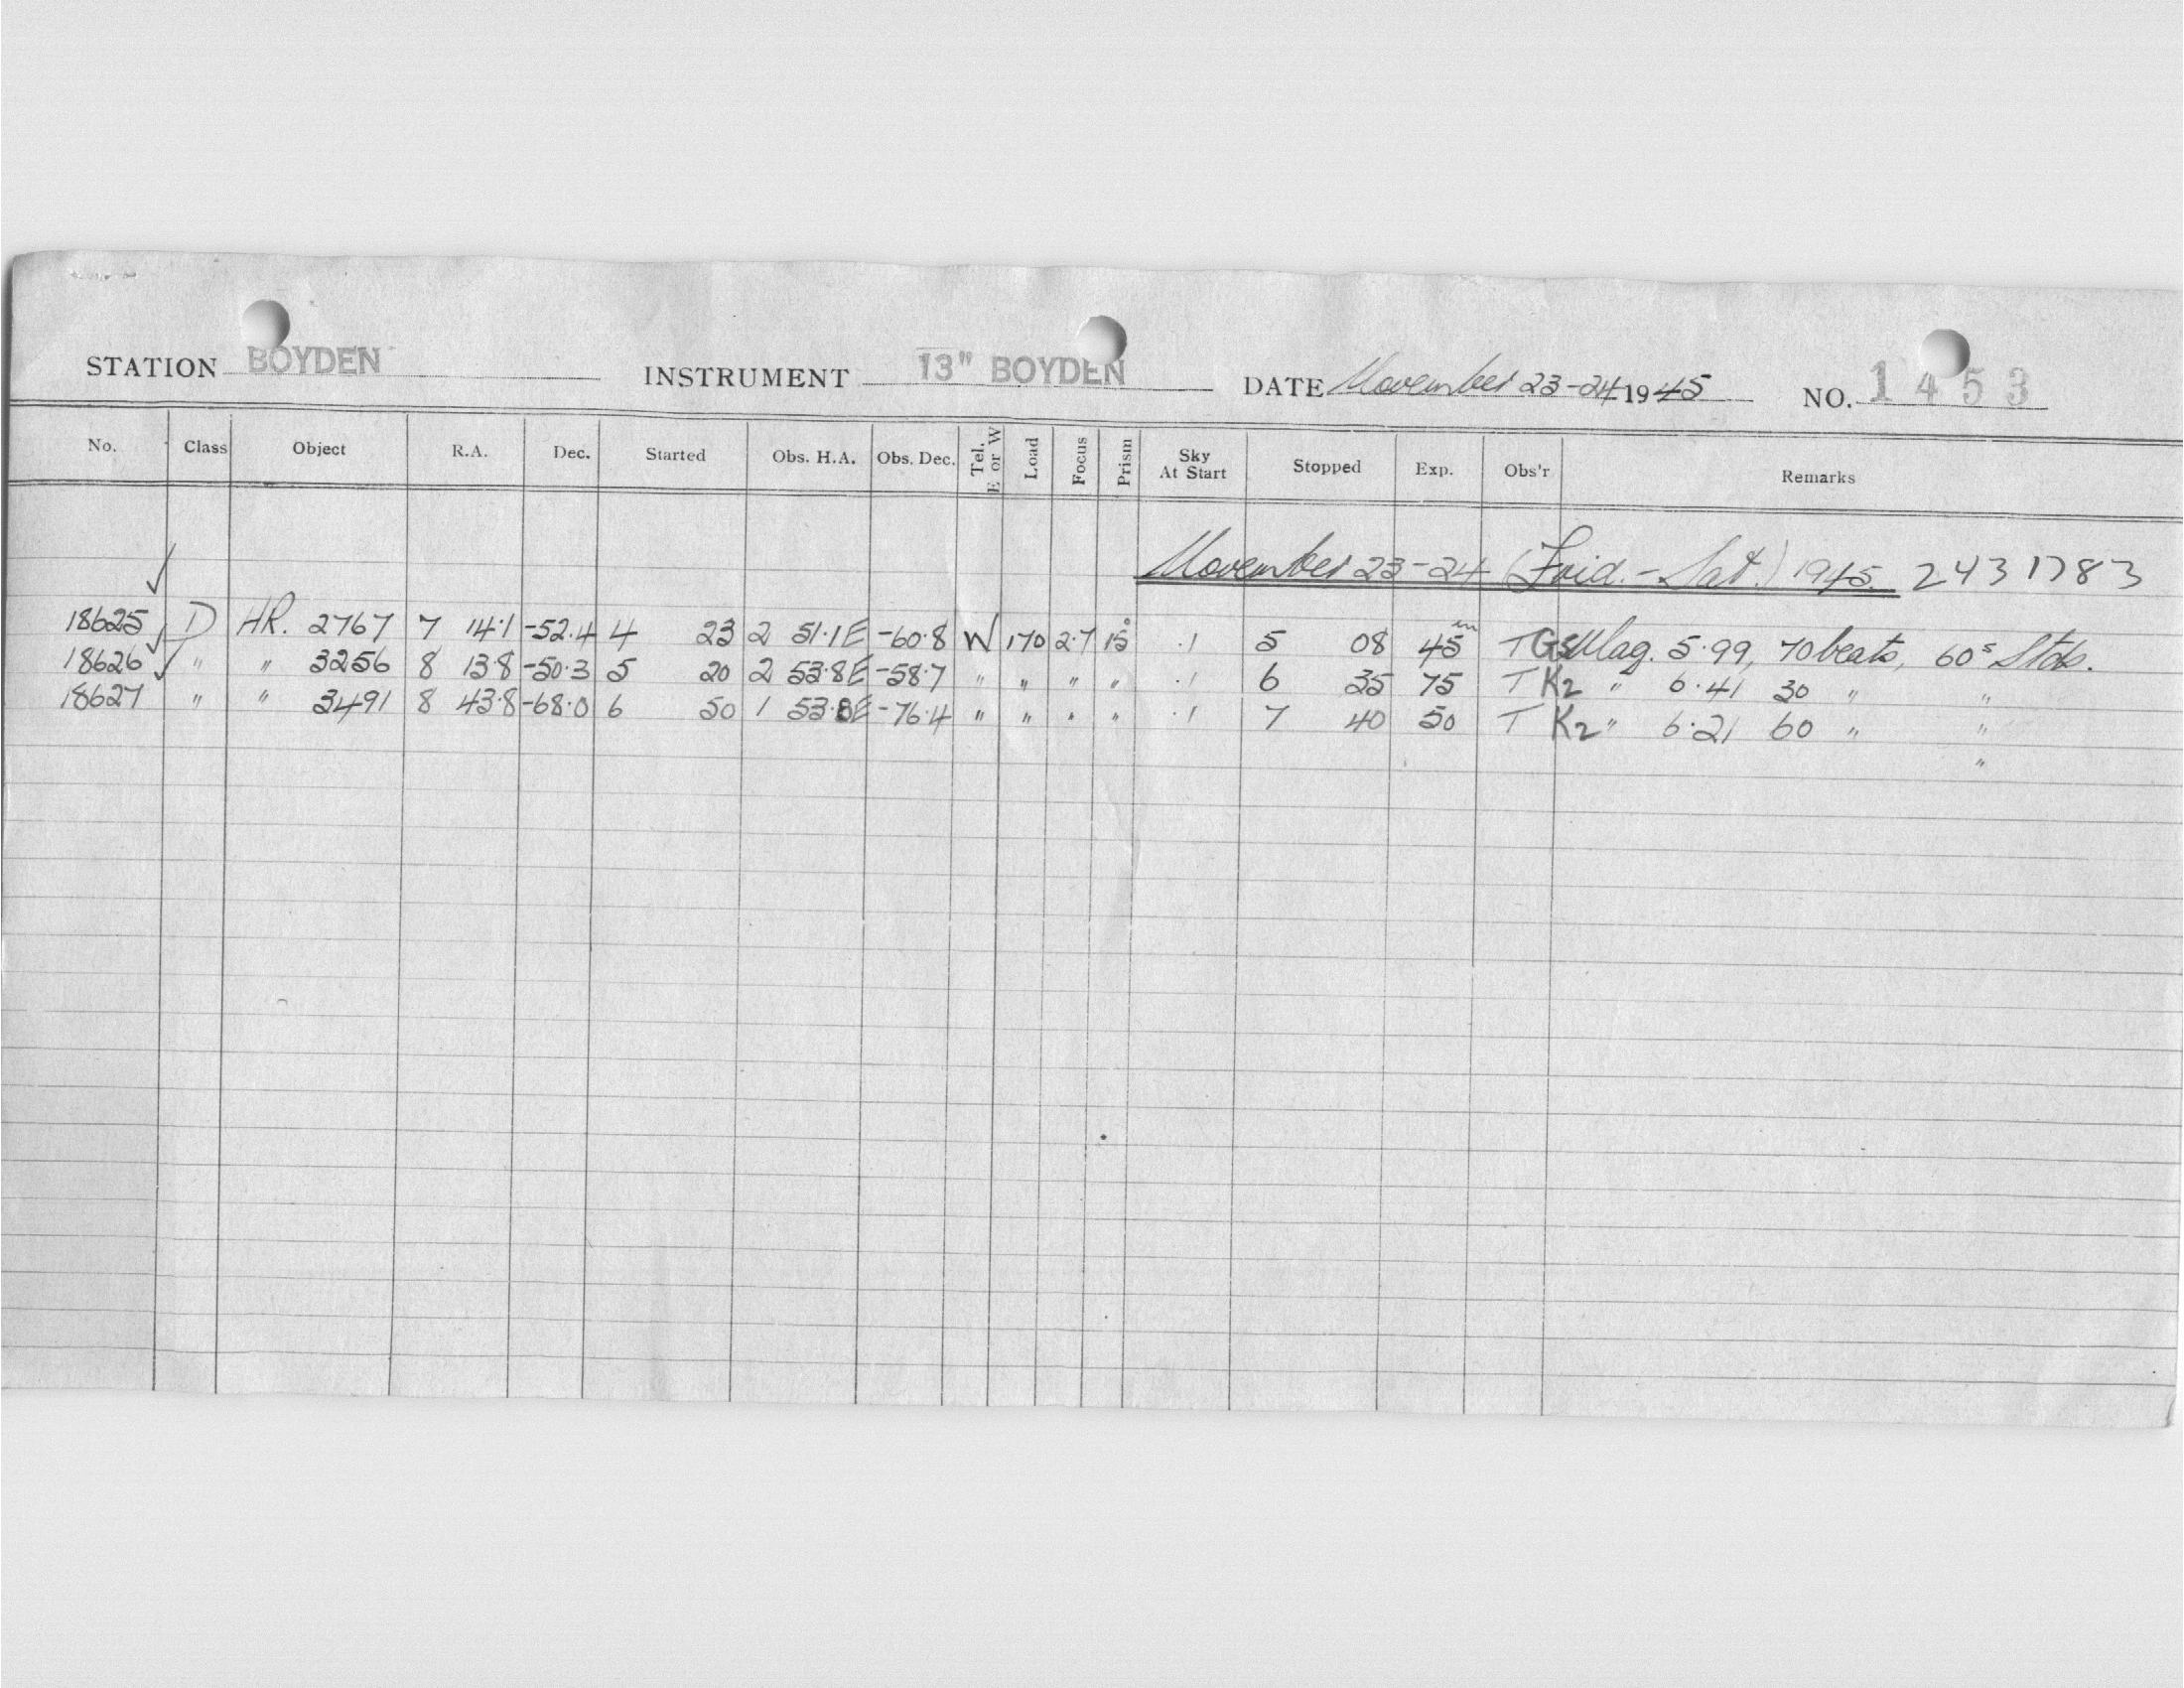 STATION BOYDEN INSTRUMENT 13" BOYDEN DATE November 23-24 1945 NO. 1453
No. Class Object R.A. Dec. Started Obs. H.A. Obs. Dec. Tel. E or W Load Focus Prism Sky At Start Stopped Exp. Obs'r Remarks
November 23-24 (Frid.-Sat.) 1945. 2431783
18625 D HR. 2767 7 14.1 -52.4 4 23 2 51.1E -60.8 W 170 2.7 15° .1 5 08 45m T G5 Mag. 5.99, 70 beats, 60s Stds.
18626 " " 3256 8 13.8 -50.3 5 20 2 53.8E -58.7 " " " " .1 6 35 75 T K2 " 6.41 30 " "
18627 " " 3491 8 43.8 -68.0 6 50 1 53.8E -76.4 " " " " .1 7 40 50 T K2 " 6.21 60 " "
"